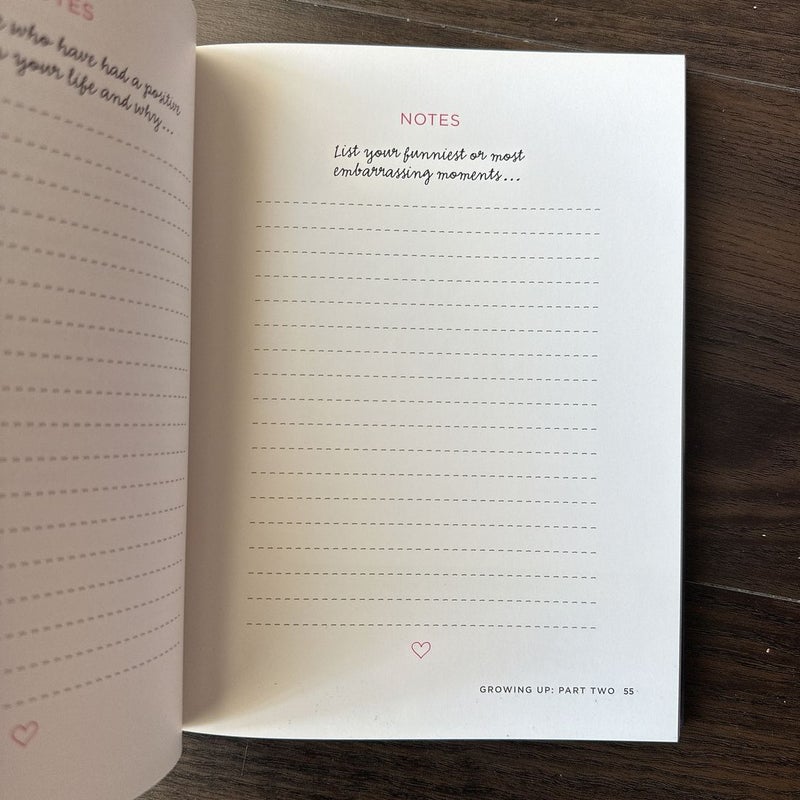 TES
who have had a positive
your life and why...
NOTES
List your funniest or most
embarrassing moments...
GROWING UP: PART TWO 55